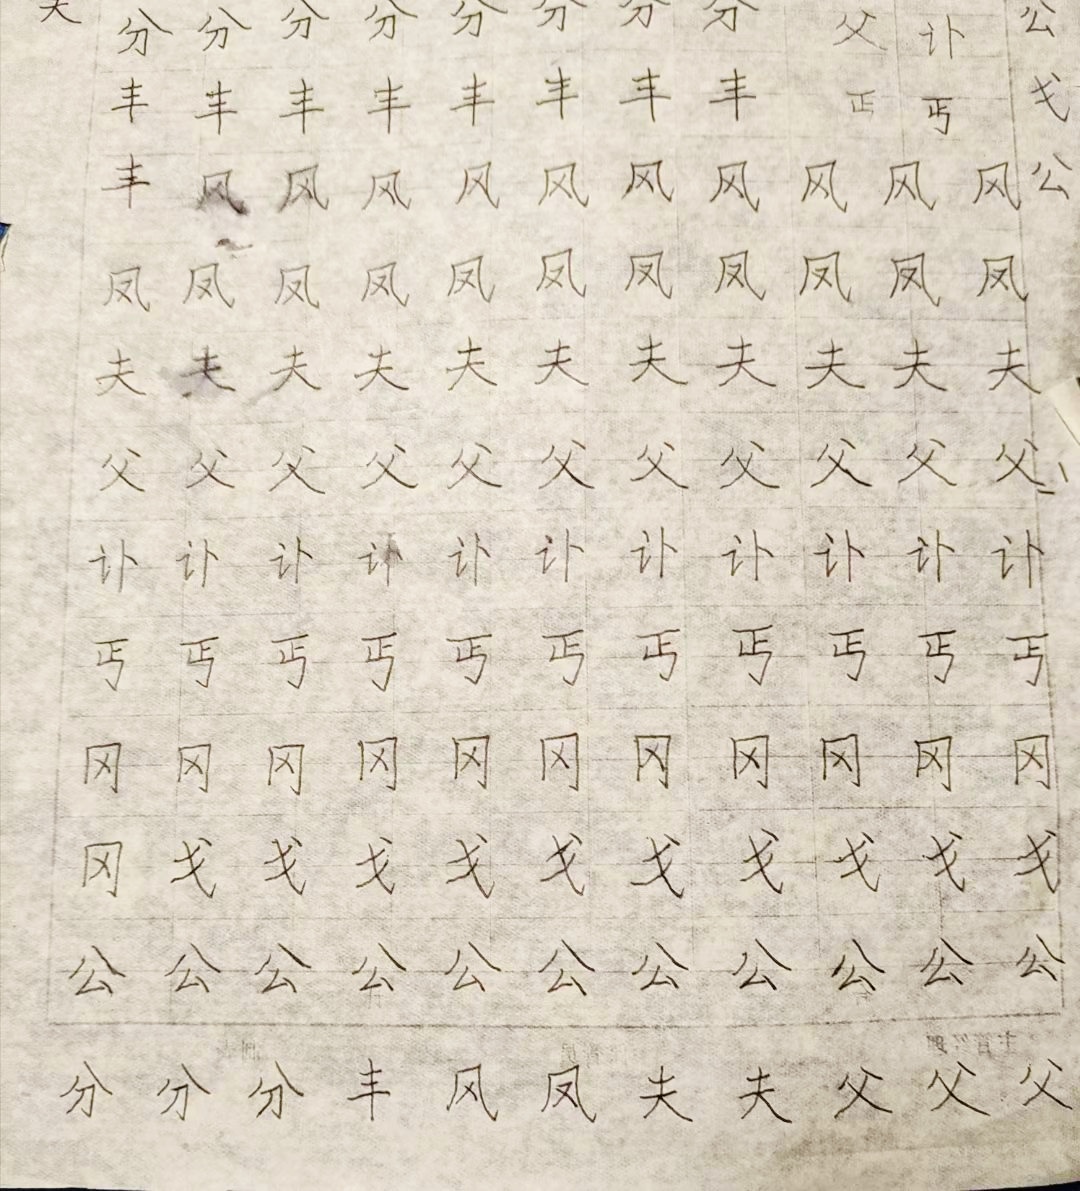 分分分分分分分分父讣公
丰丰丰丰丰丰丰丰丐戈
丰风风风风风风风风风风公
凤凤凤凤凤凤凤凤凤凤凤
夫夫夫夫夫夫夫夫夫夫夫
父父父父父父父父父父父
讣讣讣讣讣讣讣讣讣讣讣
丐丐丐丐丐丐丐丐丐丐丐
冈冈冈冈冈冈冈冈冈冈冈
冈戈戈戈戈戈戈戈戈戈戈
公公公公公公公公公公公
分分分丰风凤夫夫父父父